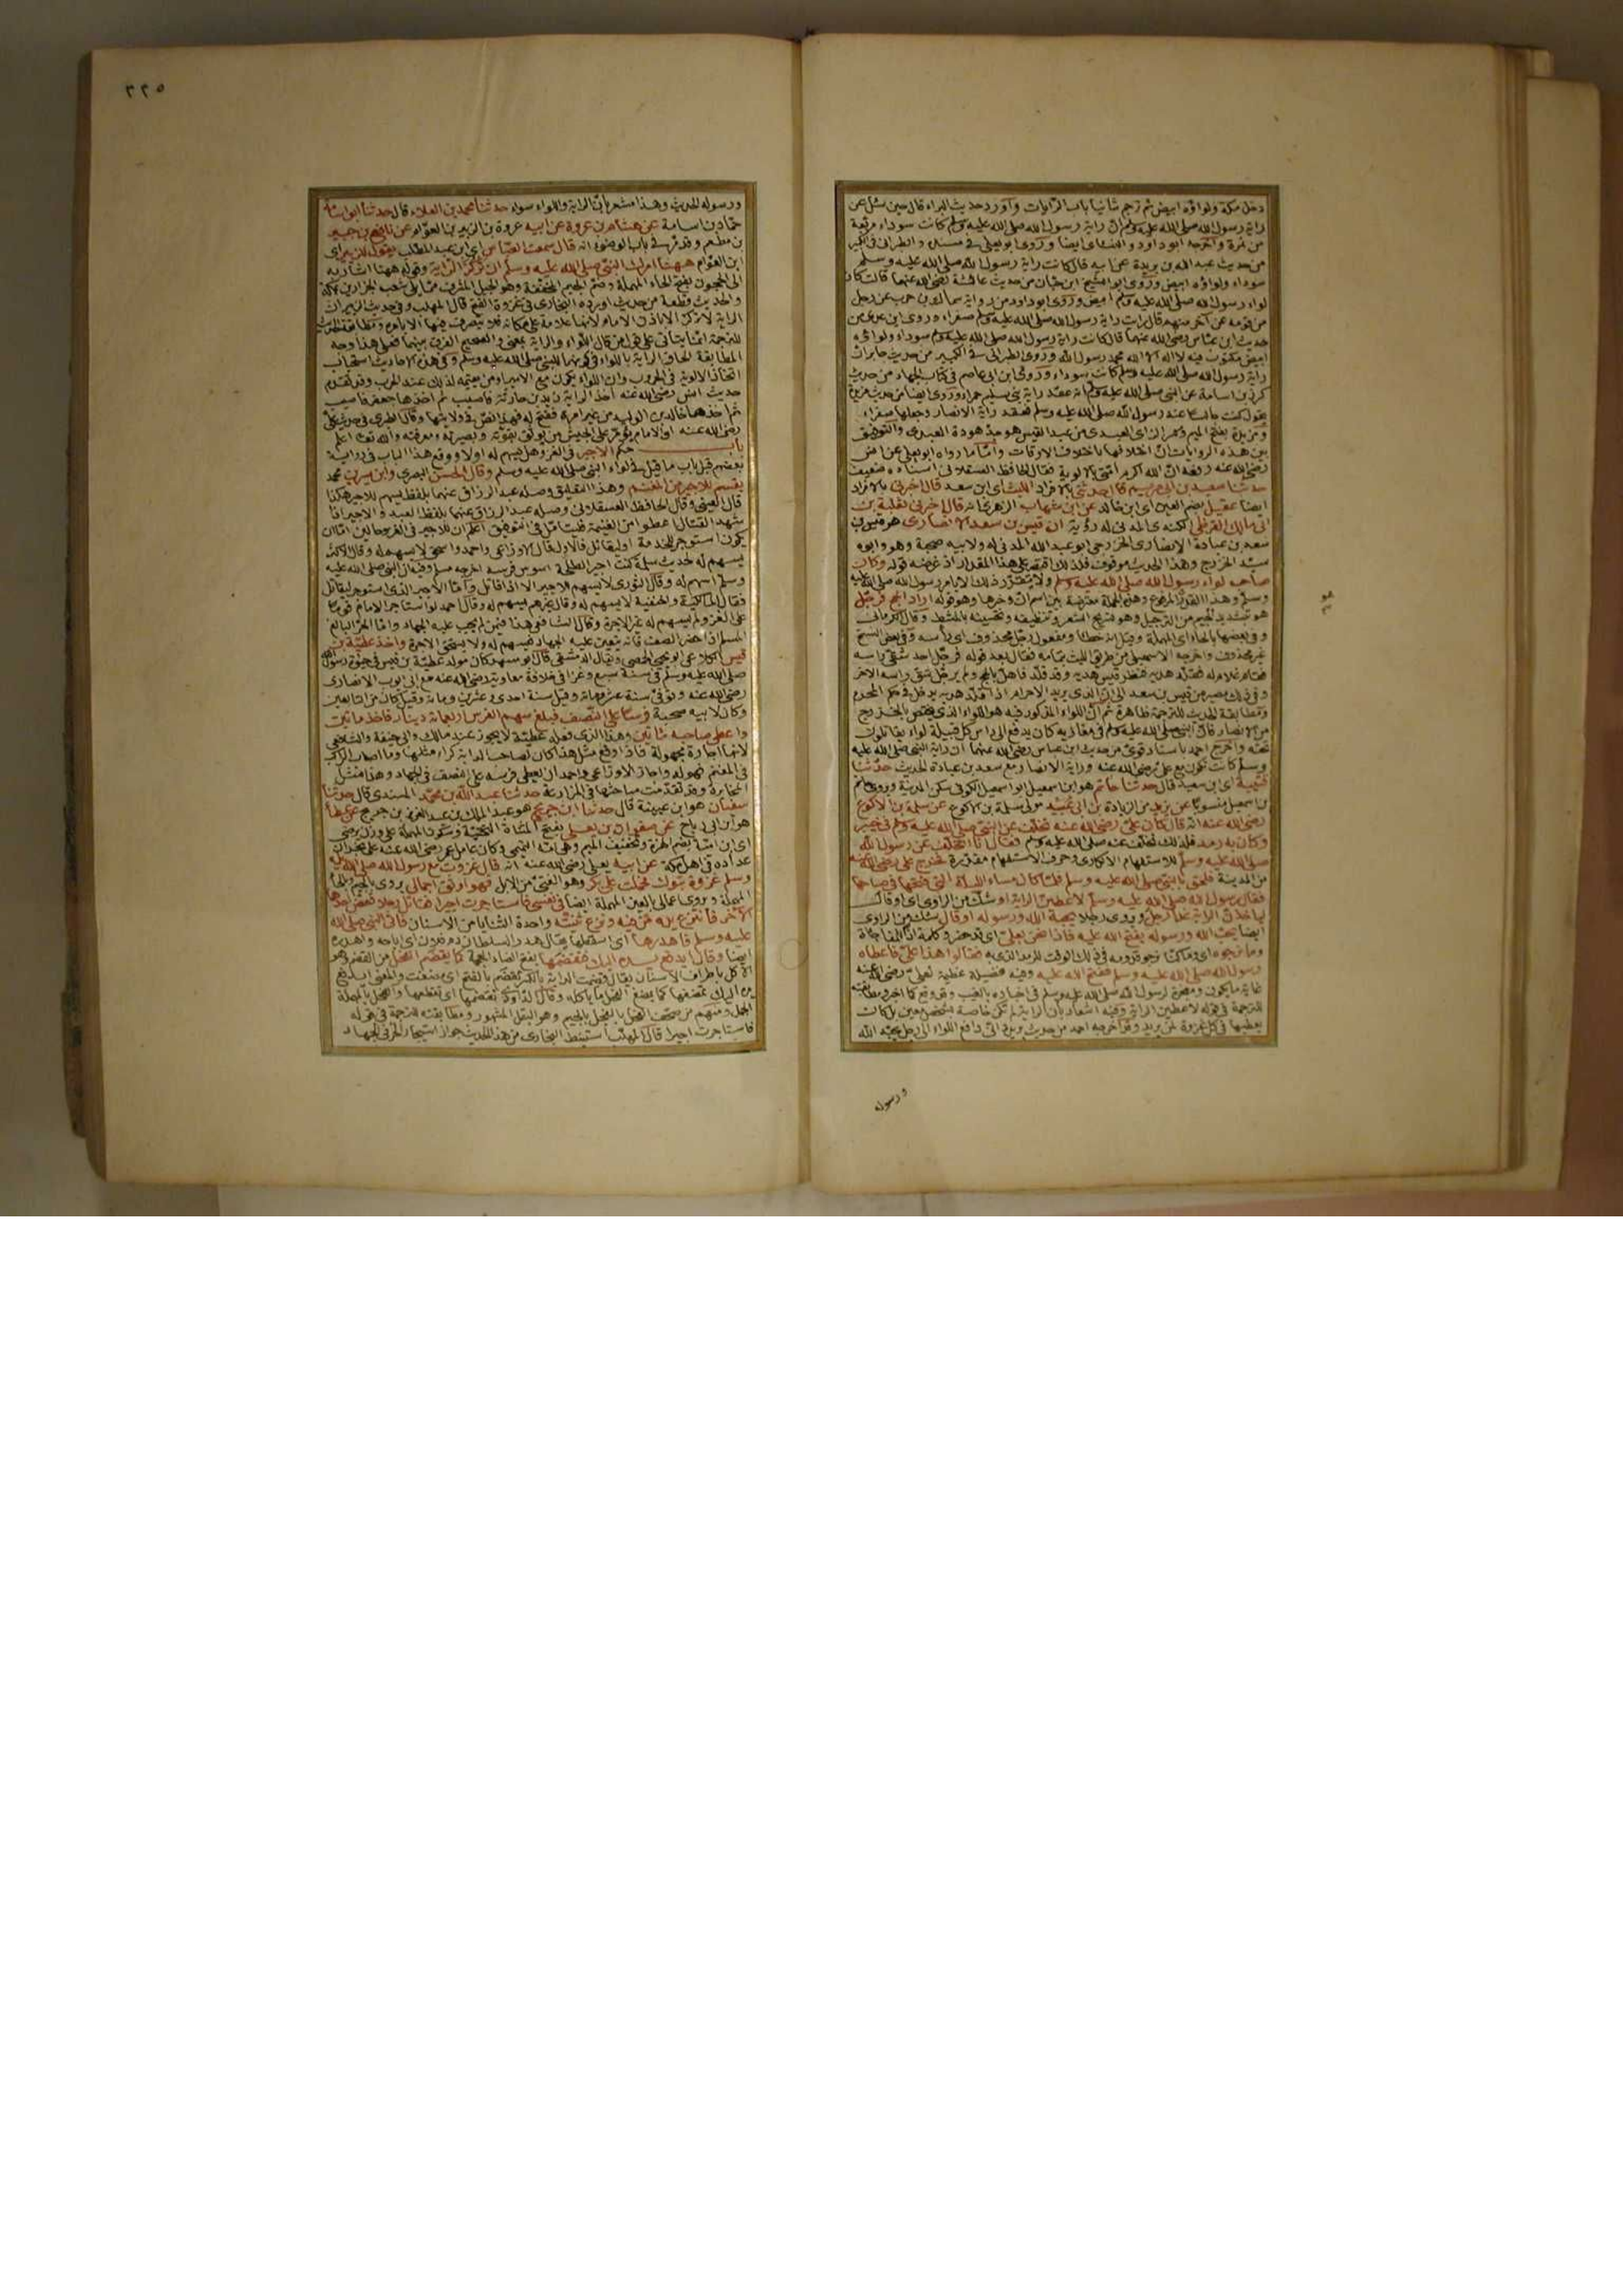 دخل مكة ولواؤه ابيض ثم ترجم ثانيا باب الرايات وأورد حديث البراء قال حين سئل عن
راية رسول الله صلى الله عليه وسلم ان راية رسول الله صلى الله عليه وسلم كانت سوداء مربعة
من نمرة وأخرجه ابو داود والنسائى ايضا وروى ابو يعلى فى مسنده والطبرانى فى الكبير
من حديث عبد الله بن بريدة عن ابيه قال كانت راية رسول الله صلى الله عليه وسلم
سوداء ولواؤه ابيض وروى ابو الشيخ ابن حبان من حديث عائشة رضى الله عنها قالت كان
لواء رسول الله صلى الله عليه وسلم ابيض وروى ابو داود من رواية سماك بن حرب عن رجل
من قومه عن آخر منهم قال رأيت راية رسول الله صلى الله عليه وسلم صفراء وروى ابن عدى من
حديث ابن عباس رضى الله عنهما قال كانت راية رسول الله صلى الله عليه وسلم سوداء ولواؤه
ابيض مكتوب فيه لا اله الا الله محمد رسول الله وروى الطبرانى فى الكبير من حديث جابر ان
راية رسول الله صلى الله عليه وسلم كانت سوداء وروى ابن ابى عاصم فى كتاب الجهاد من حديث
كرز بن اسامة عن النبى صلى الله عليه وسلم انه عقد راية بنى سليم حمراء وروى ايضا من حديث مزيدة
يقول كنت جالسا عند رسول الله صلى الله عليه وسلم فعقد راية الانصار وجعلها صفراء
ومزيدة بفتح الميم وسكون الزاى العبدى من عبد القيس هو جد هودة العبدى والتوفيق
بين هذه الروايات ان اختلافها باختلاف الاوقات واما ما رواه ابو يعلى عن انس
رضى الله عنه رفعه ان الله اكرم امتى بالالوية فقال الحافظ العسقلانى اسناده ضعيف
حدثنا سعيد بن ابى مريم قال حدثنى بالافراد الليث اى ابن سعد قال اخبرنى بالافراد
ايضا عقيل بضم العين اى ابن خالد عن ابن شهاب الزهرى انه قال اخبرنى ثعلبة بن
ابى مالك القرظى الكنه عالمدنى له رؤية ان قيس بن سعد الانصارى هو قيس بن
سعد بن عبادة الانصارى الخزرجى ابو عبد الله المدنى له ولابيه صحبة وهو وابوه
سيد الخزرج وهذا الحديث موقوف فلذلك اقتصر على هذا المقدار اذ غرضه قوله وكان
صاحب لواء رسول الله صلى الله عليه وسلم ولا يتقرر ذلك الا بامر رسول الله صلى الله عليه
وسلم وهذا القدر المرفوع وهذه الجملة معترضة بين اسم ان وخبرها وهو قوله اراد الحج فرجل
هو بتشديد الجيم من الترجيل وهو تسريح الشعر وتنظيفه وتحسينه بالمشط وقال الكرمانى
وفى بعضها بالحاء اى المهملة وقيل انه خطأ ومفعول رجل محذوف اى رأسه وفى بعض النسخ
غير محذوف واخرجه الاسمعيلى من طريق الليث بتمامه فقال بعد قوله فرجل احد شقى رأسه
فقام غلام له فقلد هديه فنظر قيس هديه وقد قلد فاهل بالحج ولم يرجل شق رأسه الاخر
ومطابقة الحديث للترجمة ظاهرة ثم ان اللواء المذكور فيه هو اللواء الذى يختص بالخزرج
من الانصار وكان النبى صلى الله عليه وسلم فى مغازيه كان يدفع الى رأس كل قبيلة لواء يقاتلون
تحته وأخرج احمد باسناد قوى من حديث ابن عباس رضى الله عنهما ان راية النبى صلى الله عليه
وسلم كانت تكون مع على رضى الله عنه وراية الانصار مع سعد بن عبادة الحديث حدثنا
قتيبة اى ابن سعيد قال حدثنا حاتم هو ابن اسمعيل ابو اسمعيل الكوفى سكن المدينة
عن يزيد من الزيادة بن ابى عبيد مولى سلمة بن الاكوع عن سلمة بن الاكوع
رضى الله عنه انه قال كان على رضى الله عنه تخلف عن النبى صلى الله عليه وسلم فى خيبر
وكان به رمد فلذلك تخلف عنه صلى الله عليه وسلم فقال انا اتخلف عن رسول الله
صلى الله عليه وسلم للاستفهام الانكارى وحرف الاستفهام مقدرة فخرج على رضى الله عنه
من المدينة فلحق بالنبى صلى الله عليه وسلم فلما كان مساء الليلة التى فتحها فى صباحها
فقال رسول الله صلى الله عليه وسلم لاعطين الراية او شك من الراوى اى او قال
ليأخذن الراية غدا رجل ويروى رجلا يحبه الله ورسوله او قال شك من الراوى
ايضا يحب الله ورسوله يفتح الله عليه فاذا نحن بعلى اى قد حضر وكلمة اذا للمفاجأة
وما نرجوه اى وما كنا نرجو قدومه فى ذلك الوقت للرمد الذى به فقالوا هذا على فاعطاه
رسول الله صلى الله عليه وسلم ففتح الله عليه وفيه فضيلة عظيمة لعلى رضى الله عنه
للترجمة فى قوله لاعطين الراية وفيه اشعار بان الراية لم تكن خاصة لشخص معين بل كانت
يعطيها فى كل غزوة لمن يريد وقد اخرجه احمد من حديث بريدة انى دافع اللواء الى رجل يحبه الله
ورسوله
٣٢٥
ورسوله الحديث وهذا مشعر بان الراية واللواء سواء حدثنا محمد بن العلاء قال حدثنا ابو اسامة
حماد بن اسامة عن هشام بن عروة عن ابيه عروة بن الزبير بن العوام عن نافع بن جبير
بن مطعم وقد مر فى باب الوضوء انه قال سمعت العباس اى ابن عبد المطلب يقول للزبير اى
ابن العوام ههنا امرك النبى صلى الله عليه وسلم ان تركز الراية وقوله ههنا اشار به
الى الحجون بفتح الحاء المهملة وضم الجيم المخففة وهو الجبل المشرف مما يلى شعب الجزارين بمكة
والحديث قطعة من حديث اورده البخارى فى غزوة الفتح قال المهلب وفى حديث الزبير ان
الراية لا تركز الا باذن الامام لانها علامة على مكانه فلا يتصرف فيها الا بامره ومطابقة الحديث
للترجمة انما يتأتى على قول من قال اللواء والراية بمعنى والصحيح الفرق بينهما فعلى هذا وجه
المطابقة الحاق الراية باللواء فى كونهما للنبى صلى الله عليه وسلم وفى هذه الاحاديث استحباب
اتخاذ الالوية فى الحروب وان اللواء يكون مع الامير او من يقيمه لذلك عند الحرب وقد تقدم
حديث انس رضى الله عنه اخذ الراية زيد بن حارثة فاصيب ثم اخذها جعفر فاصيب
ثم اخذها خالد بن الوليد من غير امرة ففتح له فهذا نص فى ولايتها وقال الطبرى فى حديث على
رضى الله عنه ان الامام يؤمر على الجيش من يوثق بقوته وبصيرته ومعرفته والله تعالى اعلم
باب حكم الاجير فى الغزو هل يسهم له اولا ووقع هذا الباب فى رواية
بعضهم قبل باب ما قيل فى لواء النبى صلى الله عليه وسلم وقال الحسن البصرى وابن سيرين محمد
يقسم للاجير من المغنم وهذا التعليق وصله عبد الرزاق عنهما بلفظ يسهم للاجير هكذا
قال العينى وقال الحافظ العسقلانى وصله عبد الرزاق عنهما بلفظ العبد والاجير اذا
شهد القتال اعطوا من الغنيمة فليتأمل فى التوفيق اعلم ان للاجير فى الغزو حالين اما ان
يكون استؤجر للخدمة او ليقاتل فالاول قال الاوزاعى واحمد واسحق لا يسهم له وقال الاكثر
يسهم له لحديث سلمة كنت اجيرا لطلحة اسوس فرسه اخرجه مسلم وفيه ان النبى صلى الله عليه
وسلم اسهم له وقال الثورى لا يسهم للاجير الا اذا قاتل واما الاجير الذى استؤجر ليقاتل
فقال المالكية والحنفية لا يسهم له وقال غيرهم يسهم له وقال احمد لو استأجر الامام قوما
على الغزو لم يسهم لهم غير الاجرة وقال الشافعى هذا فيمن لم يجب عليه الجهاد واما الحر البالغ
المسلم اذا حضر الصف فانه يتعين عليه الجهاد فيسهم له ولا يستحق الاجرة واخذ عطية بن
قيس الكلاعى ابو يحيى الحمصى ويقال الدمشقى قال ابو مسهر كان مولد عطية بن قيس فى حياة رسول الله
صلى الله عليه وسلم فى سنة سبع وغزا فى خلافة معاوية رضى الله عنه مع ابى ايوب الانصارى
رضى الله عنه وتوفى سنة عشر ومائة وقيل سنة احدى وعشرين ومائة وقيل كان من التابعين
وكان لابيه صحبة فرسا على النصف فبلغ سهم الفرس اربعمائة دينار فاخذ مائتين
واعطى صاحبه مائتين وهذا الذى فعله عطية لا يجوز عند مالك وابى حنيفة والشافعى
لانها اجارة مجهولة فاذا وقع مثل هذا كان لصاحب الدابة كراء مثلها وما اصاب الراكب
فى المغنم فهو له واجاز الاوزاعى واحمد ان يعطى فرسه على النصف فى الجهاد وهذا مثل
المخابرة وقد تقدمت مباحثها فى المزارعة حدثنا عبد الله بن محمد المسندى قال حدثنا
سفيان هو ابن عيينة قال حدثنا ابن جريج هو عبد الملك بن عبد العزيز بن جريج عن عطاء
هو ابن ابى رباح عن صفوان بن يعلى بفتح المثناة التحتية وسكون المهملة على وزن يرضى
اى ابن امية بضم الهمزة وتخفيف الميم التميمى وكان عامل عمر رضى الله عنه على نجران
عداده فى اهل مكة عن ابيه يعلى رضى الله عنه انه قال غزوت مع رسول الله صلى الله عليه
وسلم غزوة تبوك فحملت على بكر وهو الفتى من الابل فهو اوثق اجمالى يروى بالجيم وبالحاء
المهملة ويروى اعمالى بالعين المهملة ايضا فى نفسى فاستأجرت اجيرا فقاتل رجلا فعض احدهما
الآخر فانتزع يده من فيه ونزع ثنيته واحدة الثنايا من الاسنان فاتى النبى صلى الله
عليه وسلم فاهدرها اى اسقطها يقال هدر السلطان دم فلان اى اباحه واهدره
ايضا وقال ايدفع يده اليك فتقضمها بفتح الضاد المعجمة كما يقضم الفحل من القضم وهو
الاكل باطراف الاسنان يقال قضمت الدابة بالكسر تقضم بالفتح
فاستأجرت اجيرا قال المهلب استنبط البخارى من هذا الحديث جواز استئجار الحر فى الجهاد